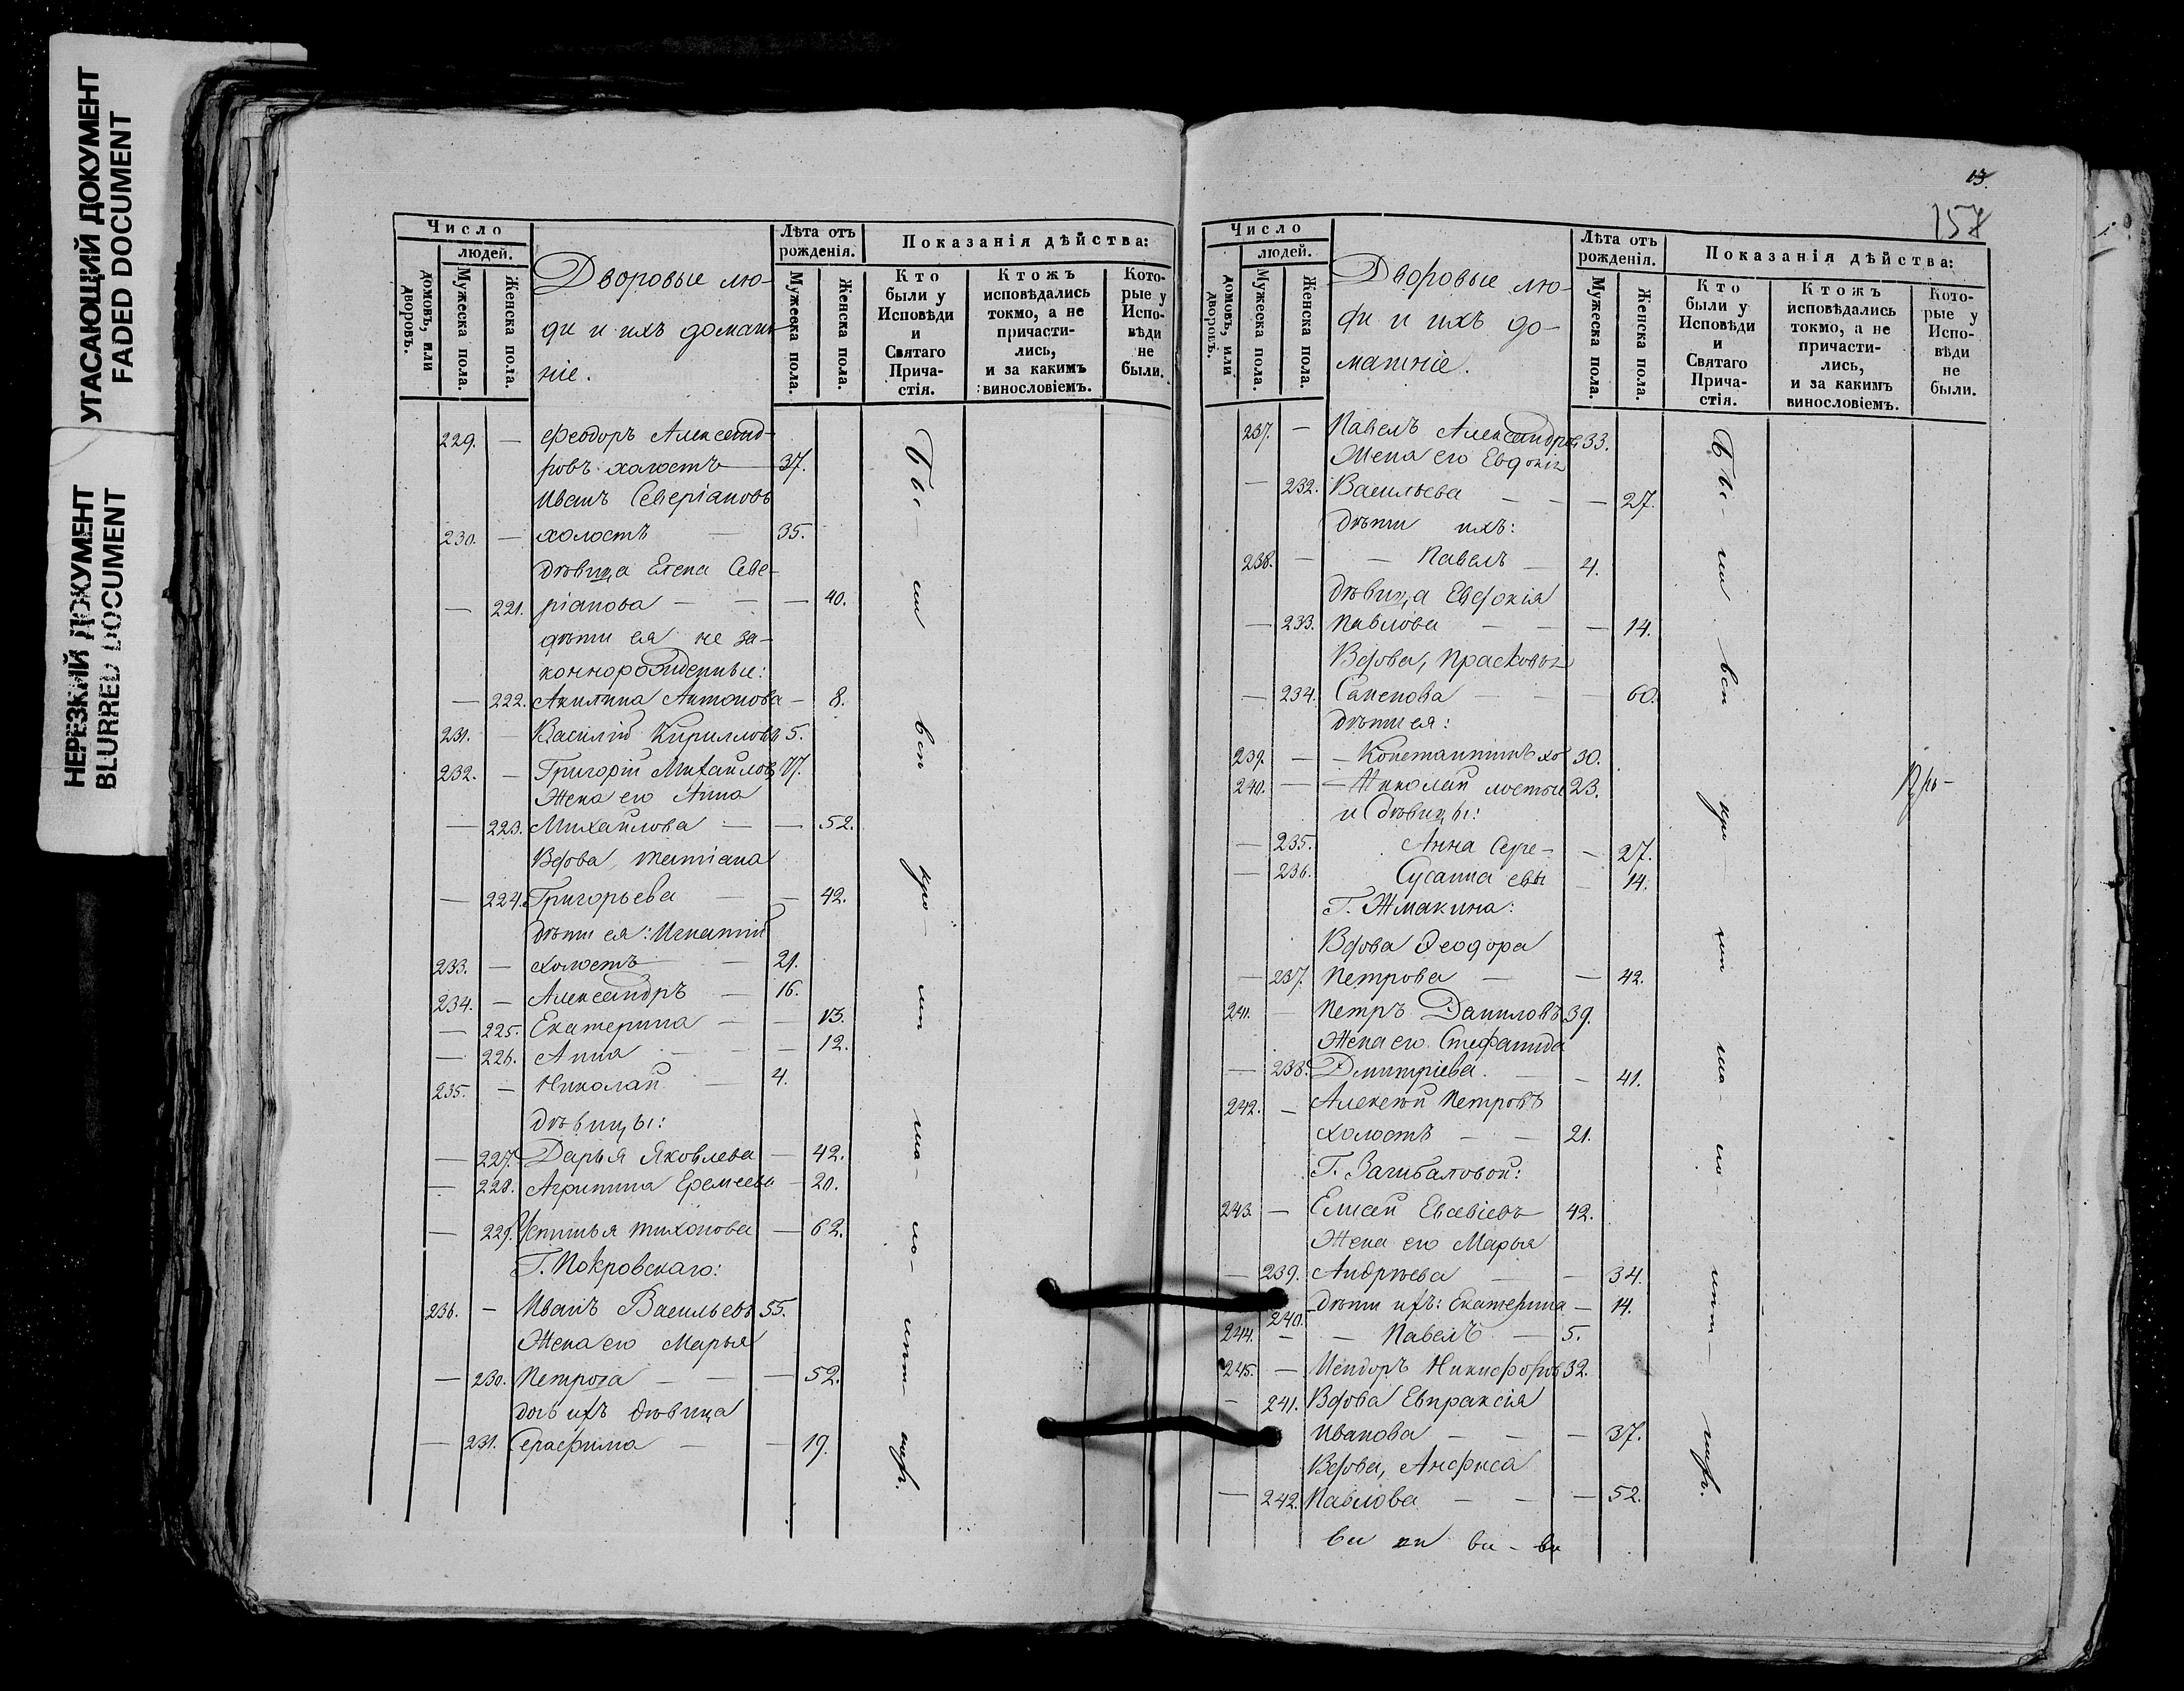 УГАСАЮЩИЙ ДОКУМЕНТ
FADED DOCUMENT
НЕРЕЗКИЙ ДОКУМЕНТ
BLURRED DOCUMENT
Число
людей.
домовъ, или дворовъ.
Мужеска пола.
Женска пола.
Дворовые лю-
ди и ихъ домаш
ніе.
Лѣта отъ
рожденія.
Мужеска пола.
Женска пола.
Показанія дѣйства:
Кто
были у
Исповѣди
и
Святаго
Прича-
стія.
Ктожъ
исповѣдались
токмо, а не
причасти-
лись,
и за какимъ
винословіемъ.
Кото-
рые у
Испо-
вѣди
не
были.
229. — Феодоръ Александ-
ровъ холостъ — 37.
Иванъ Северіановъ
230. — холостъ — 35.
дѣвица Елена Севе-
— 221. ріанова — — — 40.
дѣти ея не за-
коннорожденные:
— 222. Акилина Антонова — 8.
231. — Василій Кирилловъ 5.
232. — Григорій Михайловъ 77.
Жена его Анна
— 223. Михайлова — — 52.
Вдова, Татіана
— 224. Григорьева — — 42.
дѣти ея: Игнатій
233. — холостъ — 21.
234. — Александръ — 16.
— 225. Екатерина — — 13.
— 226. Анна — — — 12.
235. — Николай — 4.
дѣвицы:
— 227. Дарья Яковлева — 42.
— 228. Агрипина Еремеева — 20.
— 229. Устинья Тихонова — 62.
Г. Покровскаго:
236. — Иванъ Васильевъ 55.
Жена его Марья
— 230. Петрова — — — 52.
дочь ихъ дѣвица
— 231. Серафима — — 19.
Бы-
ли
всѣ
13.
157
Число
людей.
домовъ, или дворовъ.
Мужеска пола.
Женска пола.
Дворовые лю-
ди и ихъ до-
машніе.
Лѣта отъ
рожденія.
Мужеска пола.
Женска пола.
Показанія дѣйства:
Кто
были у
Исповѣди
и
Святаго
Прича-
стія.
Ктожъ
исповѣдались
токмо, а не
причасти-
лись,
и за какимъ
винословіемъ.
Кото-
рые у
Испо-
вѣди
не
были.
237. — Павелъ Александров 33.
Жена его Евдокія
— 232. Васильева — — — 27.
дѣти ихъ:
238. — — Павелъ — 4.
дѣвица Евдокія
— 233. Павлова — — — 14.
Вдова, Прасковья
— 234. — — — 60.
дѣти ея:
239. — — Константинъ хо 30.
240. — — Николай лостые 23.
и дѣвицы:
— 235. Анна Серге- — 27.
— 236. Сусанна евы — 14.
Г. Жмакина:
Вдова Ѳеодора
— 237. Петрова — — 42.
241. — Петръ Даниловъ 39.
Жена его Стефанида
— 238. Дмитріева — — 41.
242. — Алексѣй Петровъ
холостъ — — 21.
243. — Елисей Евсевіевъ 42.
Жена его Марья
— 239. Андрѣева — — 34.
240. дѣти ихъ: Екатерина — 14.
244. — — Павелъ — 5.
245. — Никифоров 32.
— 241. Вдова Евпраксія
Иванова — — — 37.
Вдова, Анфиса
— 242. Павлова — — — 52.
Бы-
ли
всѣ